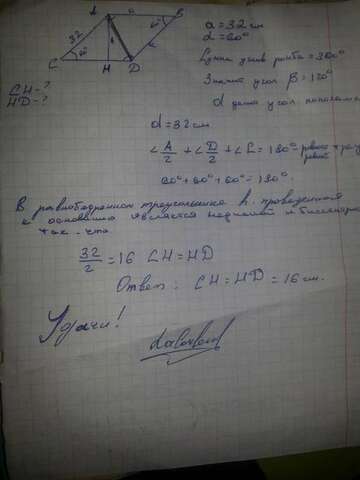 A a B
32 60° h a
C 60° H D
CH-?
HD-?
a = 32 см
α = 60°
Сумма углов ромба = 360°
Значит угол β = 120°
d делит угол пополам
d = 32 см
∠A/2 + ∠D/2 + ∠C = 180°
60° + 60° + 60° = 180°
В равнобедренном треугольнике h, проведённая
к основанию является медианой и биссектр
так что
32/2 = 16 CH = HD
Ответ: CH = HD = 16 см.
Удачи!